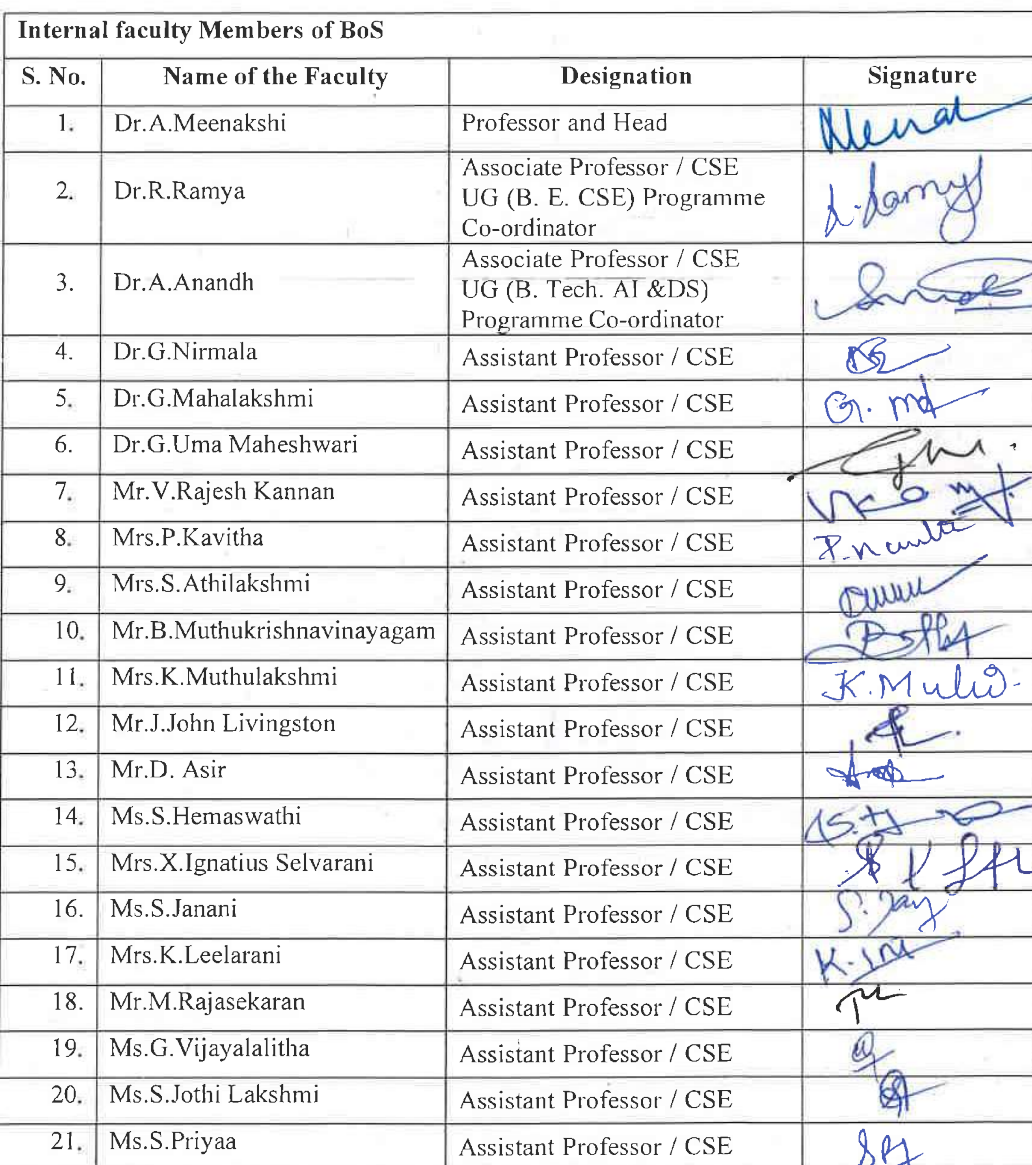 Internal faculty Members of BoS
S. No. Name of the Faculty Designation Signature
1. Dr.A.Meenakshi Professor and Head
2. Dr.R.Ramya Associate Professor / CSE
UG (B. E. CSE) Programme
Co-ordinator
3. Dr.A.Anandh Associate Professor / CSE
UG (B. Tech. AI &DS)
Programme Co-ordinator
4. Dr.G.Nirmala Assistant Professor / CSE
5. Dr.G.Mahalakshmi Assistant Professor / CSE
6. Dr.G.Uma Maheshwari Assistant Professor / CSE
7. Mr.V.Rajesh Kannan Assistant Professor / CSE
8. Mrs.P.Kavitha Assistant Professor / CSE
9. Mrs.S.Athilakshmi Assistant Professor / CSE
10. Mr.B.Muthukrishnavinayagam Assistant Professor / CSE
11. Mrs.K.Muthulakshmi Assistant Professor / CSE
12. Mr.J.John Livingston Assistant Professor / CSE
13. Mr.D. Asir Assistant Professor / CSE
14. Ms.S.Hemaswathi Assistant Professor / CSE
15. Mrs.X.Ignatius Selvarani Assistant Professor / CSE
16. Ms.S.Janani Assistant Professor / CSE
17. Mrs.K.Leelarani Assistant Professor / CSE
18. Mr.M.Rajasekaran Assistant Professor / CSE
19. Ms.G.Vijayalalitha Assistant Professor / CSE
20. Ms.S.Jothi Lakshmi Assistant Professor / CSE
21. Ms.S.Priyaa Assistant Professor / CSE